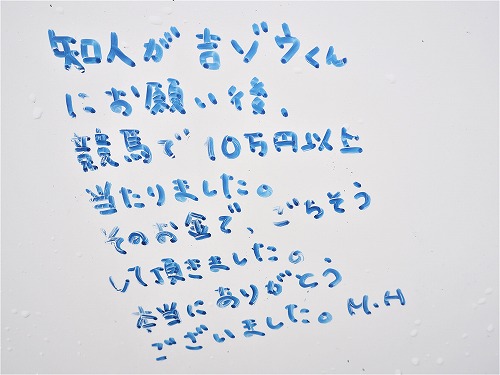 知人が吉ゾウくん
にお願い後、
競馬で10万円以上
当たりました。
そのお金で、ごちそう
して頂きました。
本当にありがとう
ございました。M.H